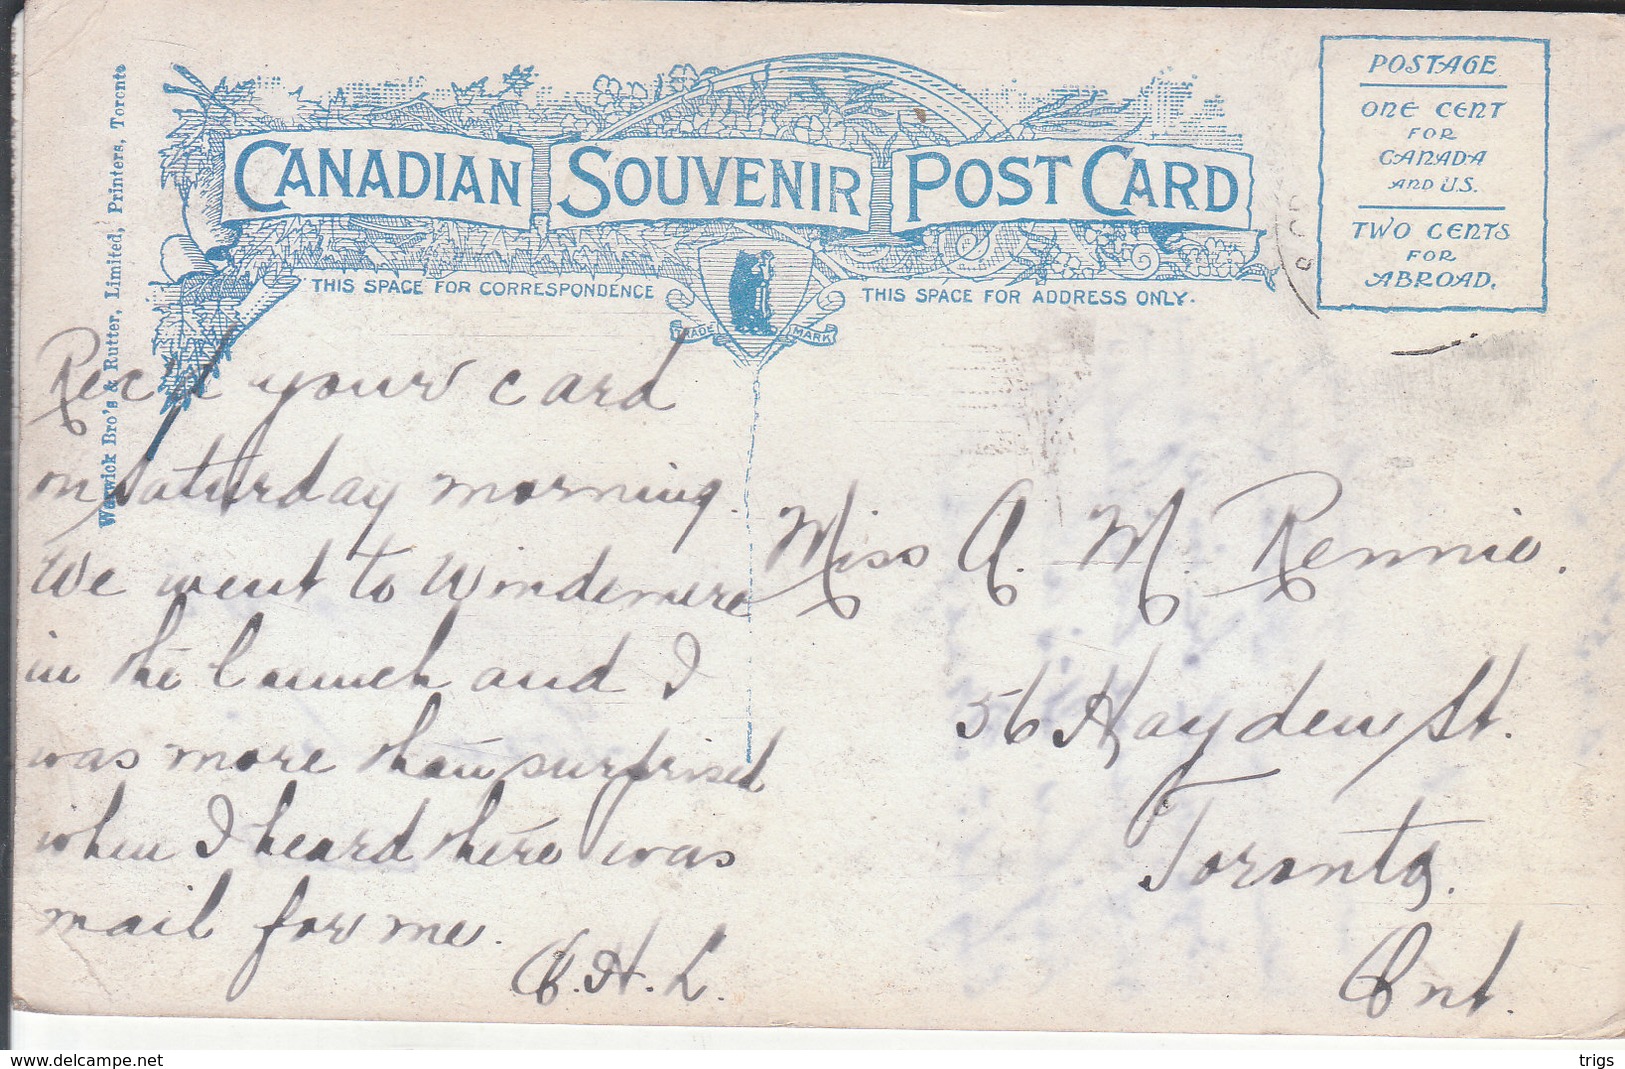 CANADIAN SOUVENIR POST CARD
POSTAGE
ONE CENT
FOR
CANADA
AND U.S.
TWO CENTS
FOR
ABROAD.
THIS SPACE FOR CORRESPONDENCE
THIS SPACE FOR ADDRESS ONLY.
TRADE MARK
Warwick Bro's & Rutter, Limited, Printers, Toronto
Rec'd your card
on Saturday morning.
We went to Windemere
in the launch and I
was more than surprised
when I heard there was
mail for me.
H. L.
Miss A. M. Rennie.
56 Hayden St.
Toronto.
Ont.
www.delcampe.net
trigs